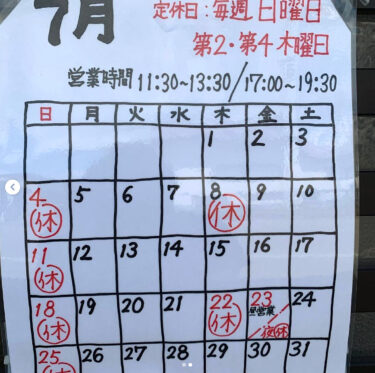 7月
定休日:毎週日曜日
第2・第4木曜日
営業時間 11:30~13:30/17:00~19:30
日 月 火 水 木 金 土
1 2 3
4 5 6 7 8 9 10
休 休
11 12 13 14 15 16 17
休
18 19 20 21 22 23 24
休 休 昼営業/夜休
25 26 27 28 29 30 31
休